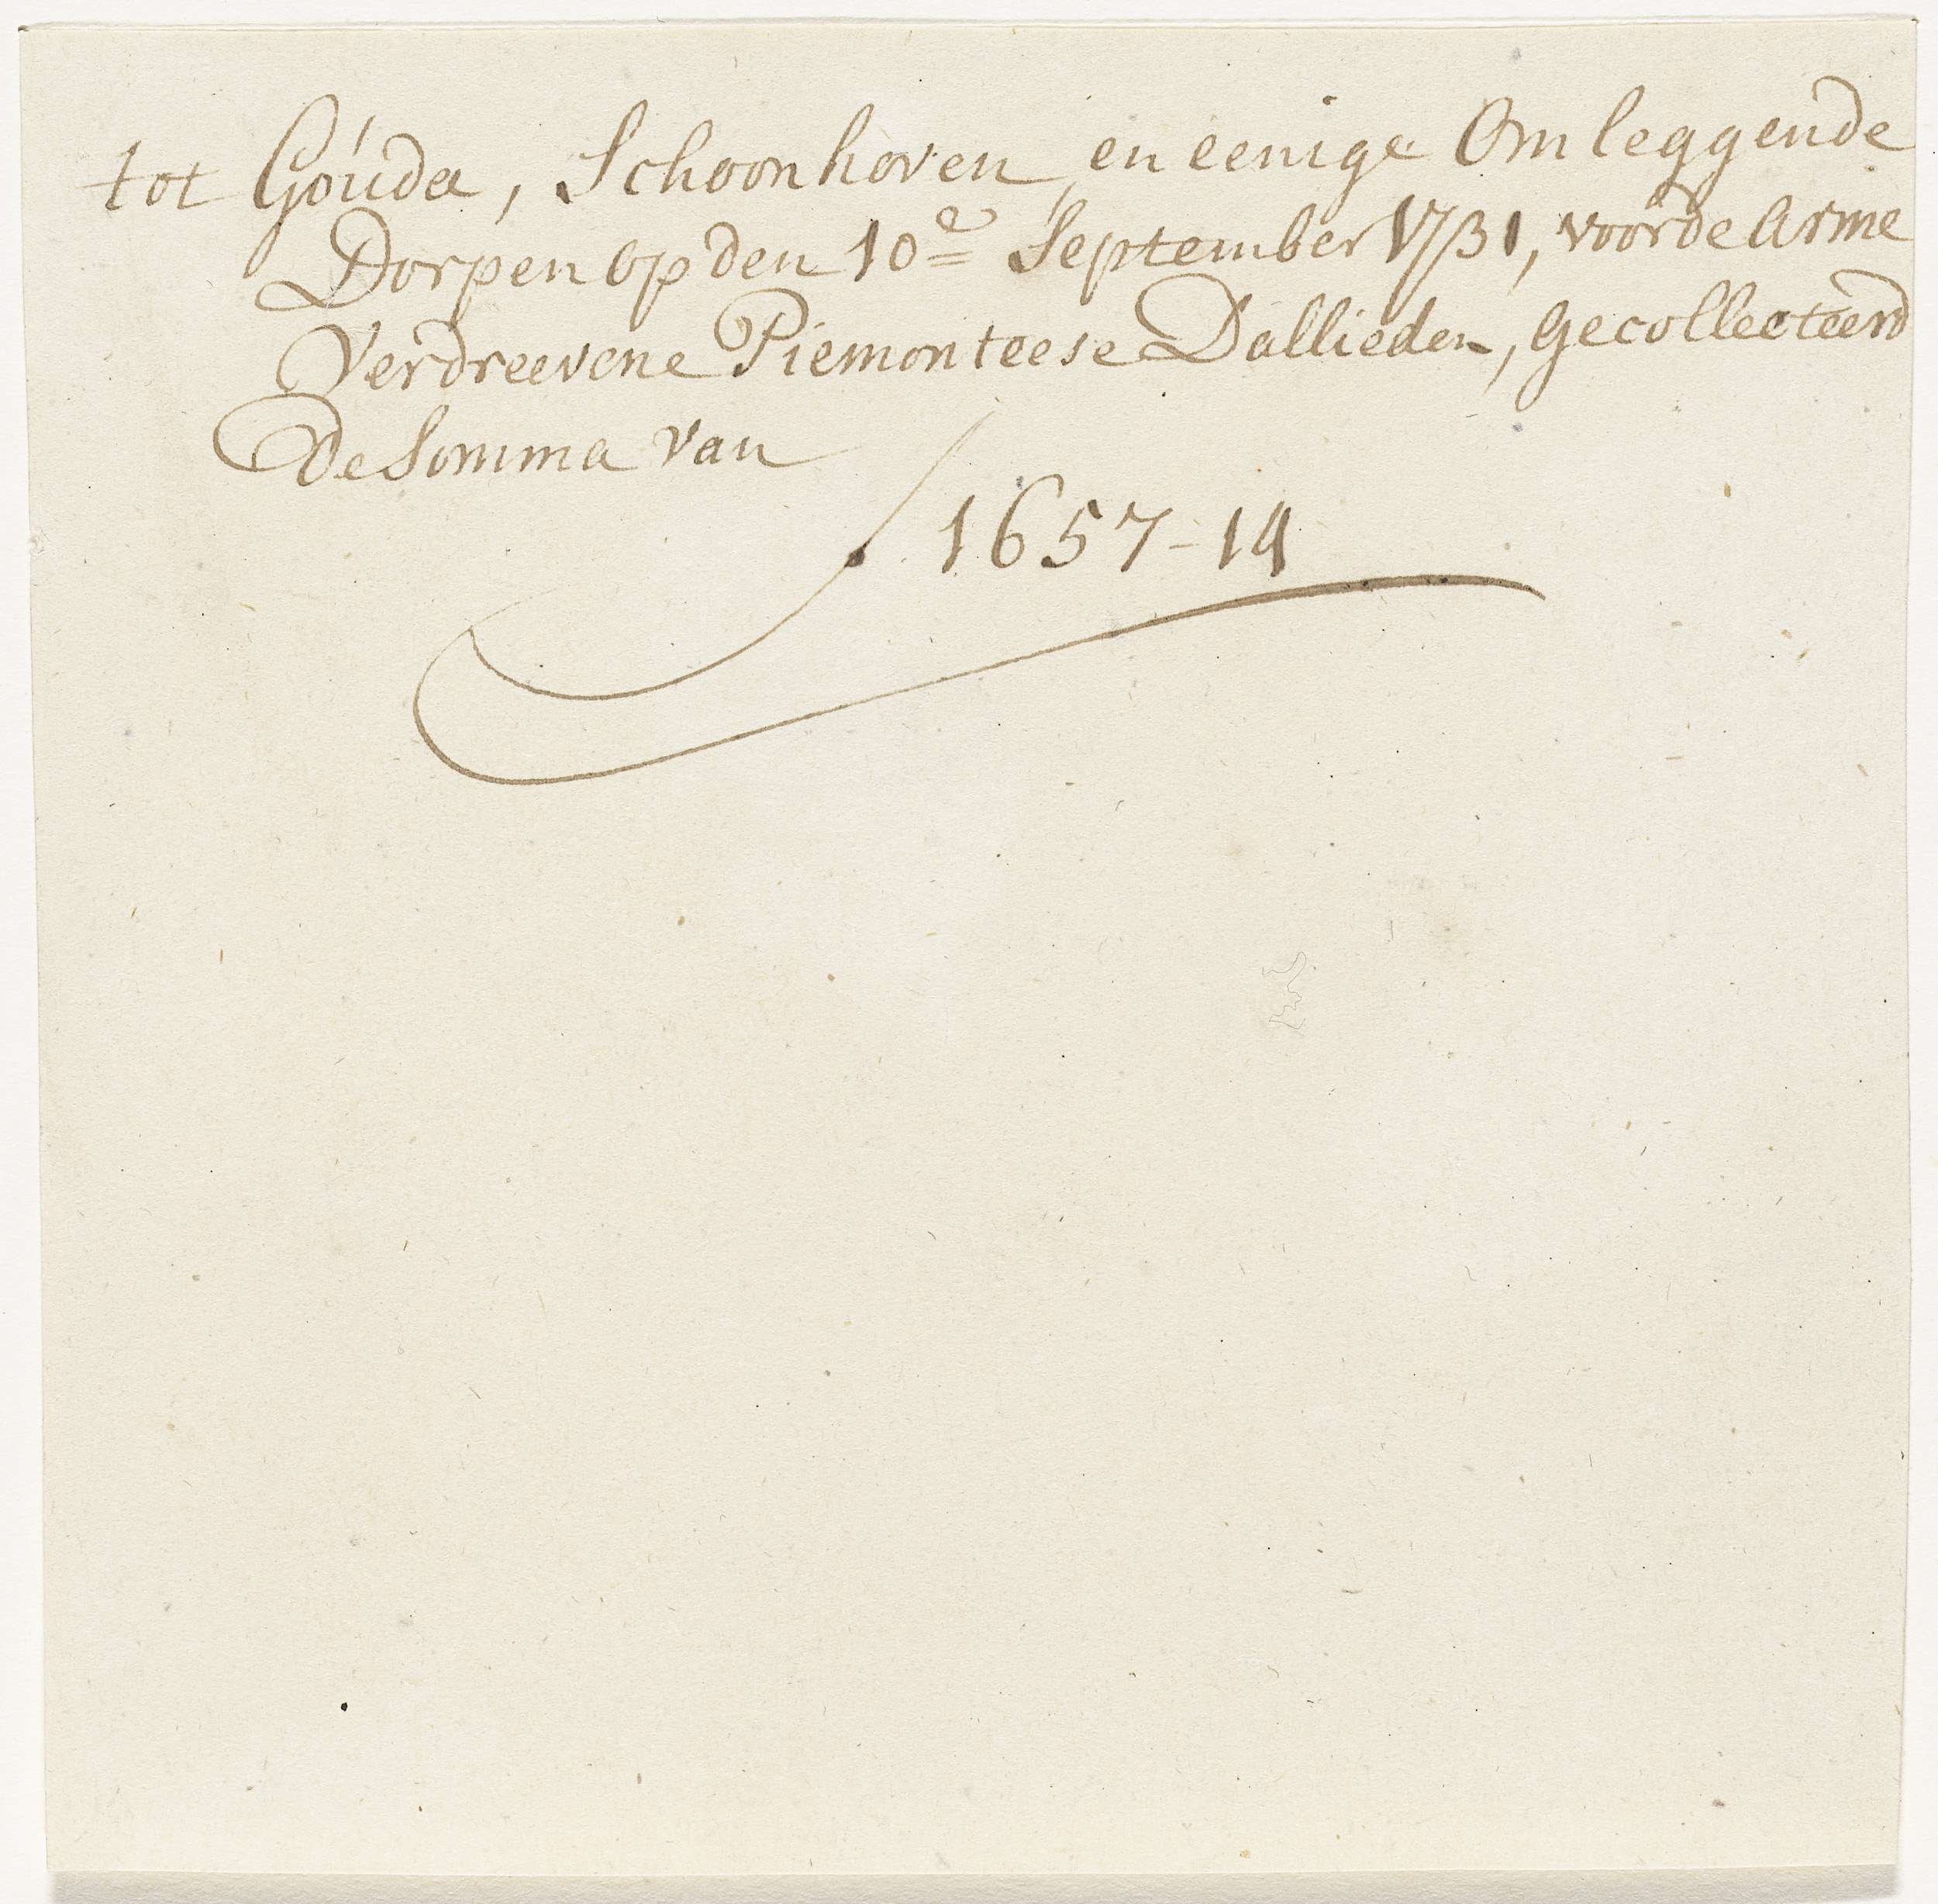 tot Gouda, Schoonhoven, en eenige Omleggende
Dorpen op den 10e September 1731, voor de Arme
Verdreevene Piemonteese Dallieden, Gecollecteerd
De Somma van
1657-14